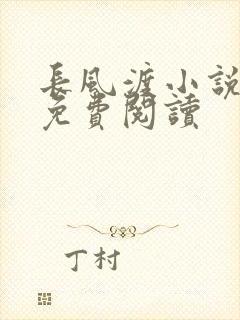 長風渡小說
免費閱讀
丁村